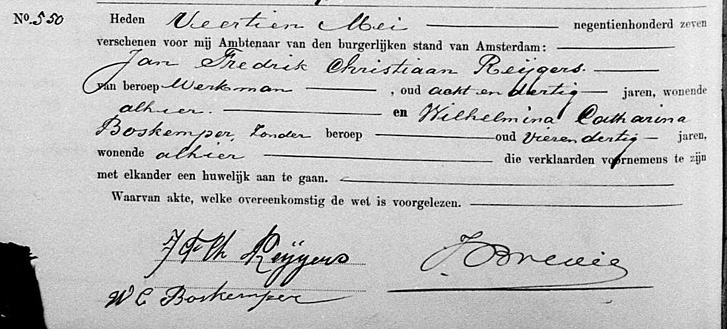 No. 550 Heden Veertien Mei negentienhonderd zeven
verschenen voor mij Ambtenaar van den burgerlijken stand van Amsterdam:
Jan Fredrik Christiaan Reijgers.
van beroep Werkman, oud acht en dertig jaren, wonende
alhier. en Wilhelmina Catharina
Boskemper, zonder beroep oud vierendertig jaren,
wonende alhier die verklaarden voornemens te zijn
met elkander een huwelijk aan te gaan.
Waarvan akte, welke overeenkomstig de wet is voorgelezen.
J F Ch Reijgers
W C Boskemper